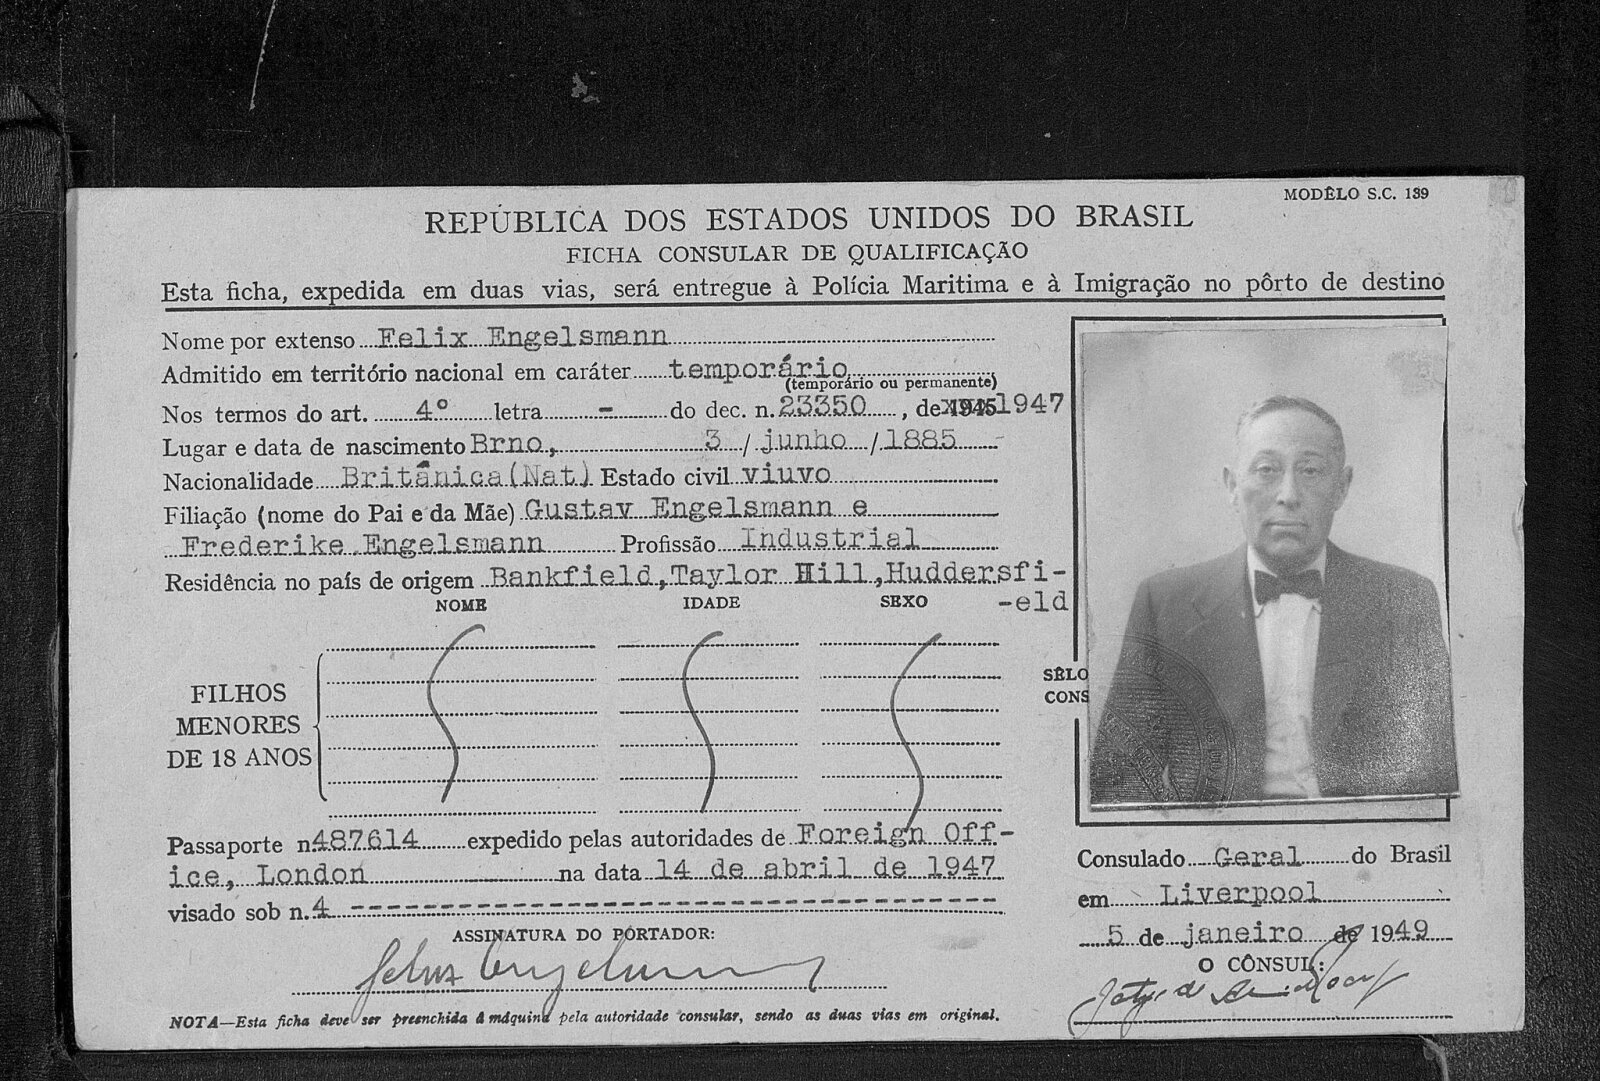 MODÊLO S.C. 139
REPÚBLICA DOS ESTADOS UNIDOS DO BRASIL
FICHA CONSULAR DE QUALIFICAÇÃO
Esta ficha, expedida em duas vias, será entregue à Polícia Maritima e à Imigração no pôrto de destino
Nome por extenso Felix Engelsmann
Admitido em território nacional em caráter temporário
(temporário ou permanente)
Nos termos do art. 4º letra - do dec. n. 23350, de 1945 1947
Lugar e data de nascimento Brno, 3 / junho / 1885
Nacionalidade Británica(Nat) Estado civil viuvo
Filiação (nome do Pai e da Mãe) Gustav Engelsmann e
Frederike Engelsmann Profissão Industrial
Residência no país de origem Bankfield,Taylor Hill,Huddersfi-
-eld
NOME IDADE SEXO
FILHOS
MENORES
DE 18 ANOS
SÊLO
CONS
Passaporte n. 487614 expedido pelas autoridades de Foreign Off-
ice, London na data 14 de abril de 1947
visado sob n. 4 ----------
ASSINATURA DO PORTADOR:
Felix Engelsmann
NOTA—Esta ficha deve ser preenchida á máquina pela autoridade consular, sendo as duas vias em original.
Consulado Geral do Brasil
em Liverpool
5 de janeiro de 1949
O CÔNSUL: